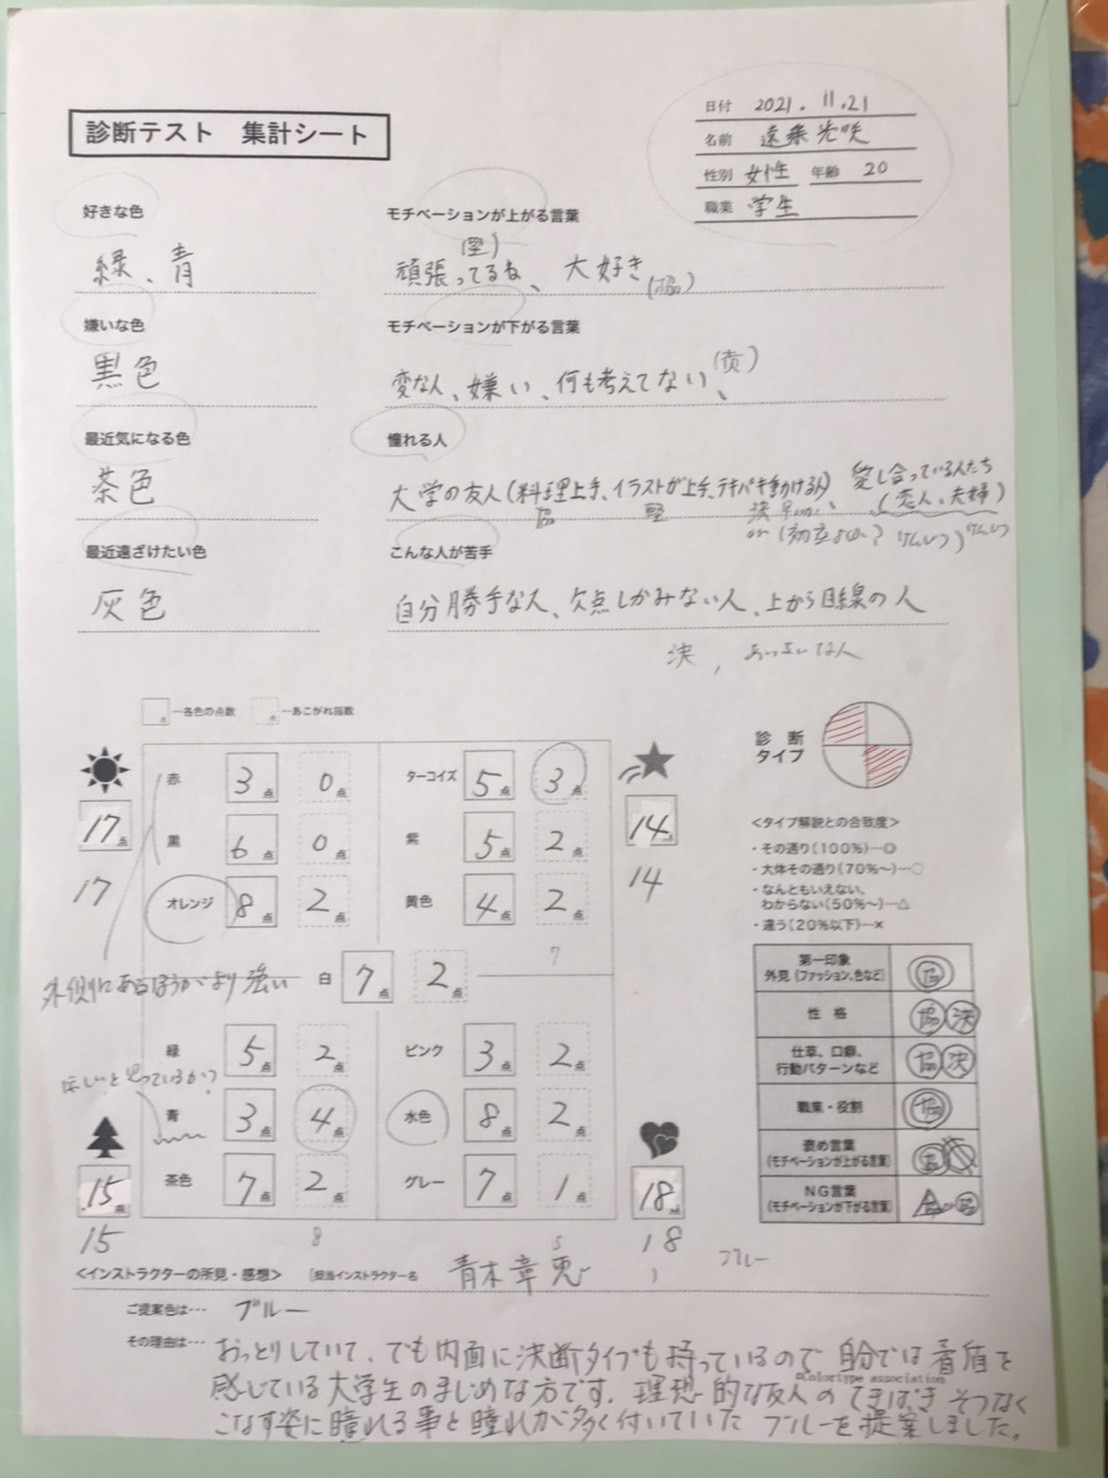 診断テスト 集計シート
日付 2021.11.21
名前
性別 女性 年齢 20
職業 学生
好きな色
緑、青
嫌いな色
黒色
最近気になる色
茶色
最近遠ざけたい色
灰色
モチベーションが上がる言葉
(堅)
頑張ってるね、大好き
(協)
モチベーションが下がる言葉
変な人、嫌い、何も考えてない、
憧れる人
大学の友人(料理上手、イラストが上手、テキパキ動ける人)、愛し合っている人たち
(恋人、夫婦)
協 堅 決
こんな人が苦手
自分勝手な人、欠点しかみない人、上から目線の人
決,
…各色の点数 点 …あこがれ指数
17点
17
赤 3点 0点
黒 6点 0点
オレンジ 8点 2点
ターコイズ 5点 3点
紫 5点 2点
黄色 4点 2点
7
14
14
外側にあるほうがより強い
白 7点 2点
緑 5点 2点
ほしいと思っているか?
青 3点 4点
茶色 7点 2点
8
15点
15
ピンク 3点 2点
水色 8点 2点
グレー 7点 1点
5
18
18
診断タイプ
<タイプ解説との合致度>
・その通り(100%)…◎
・大体その通り(70%〜)…○
・なんともいえない、
わからない(50%〜)…△
・違う(20%以下)…×
第一印象
外見(ファッション、色など) 協
性 格 協 決
仕草、口癖、
行動パターンなど 協 決
職業・役割 協
褒め言葉
(モチベーションが上がる言葉)
NG言葉
(モチベーションが下がる言葉)
ブルー
<インストラクターの所見・感想> [担当インストラクター名 青木章
ご提案色は… ブルー
その理由は… おっとりしていて、でも内面に決断タイプも持っているので自分では矛盾を
感じている大学生のまじめな方です。理想的な友人のてきぱきそつなく
©Colortype association
こなす姿に憧れる事と憧れが多く付いていた ブルーを提案しました。